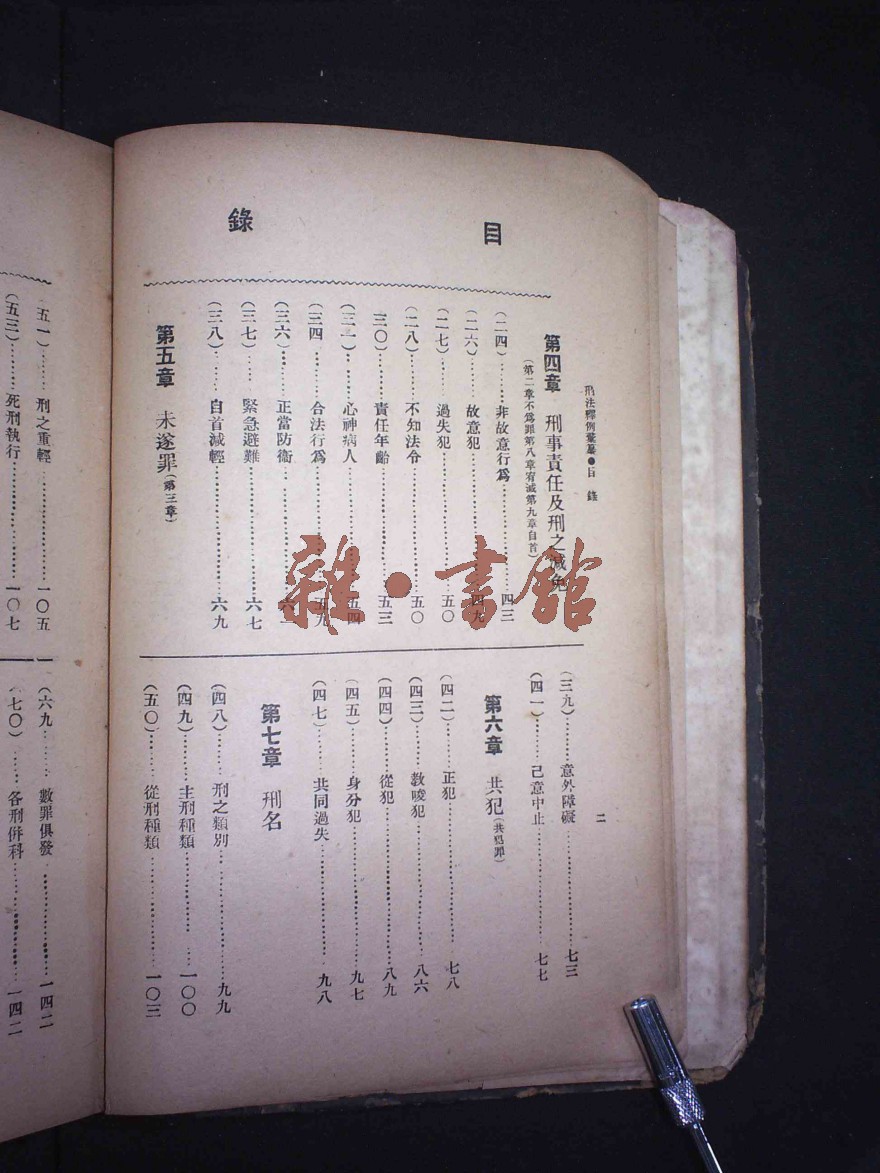 刑法釋例彙纂●目錄
二
目錄
第四章 刑事責任及刑之減免
(第二章不爲罪第八章宥減第九章自首)
(二四)………非故意行爲………四三
(二六)………故意犯………四九
(二七)………過失犯………五〇
(二八)………不知法令………五〇
三〇)………責任年齡………五三
(三二)………心神病人………五四
(三四………合法行爲………五九
(三六)………正當防衞………六
(三七)………緊急避難………六七
(三八)………自首減輕………六九
第五章 未遂罪(第三章)
(三九)………意外障礙………七三
(四一)………己意中止………七七
第六章 共犯(共犯罪)
(四二)………正犯………七八
(四三)………教唆犯………八六
(四四)………從犯………八九
(四五)………身分犯………九七
(四七)………共同過失………九八
第七章 刑名
(四八)………刑之類別………九九
(四九)………主刑種類………一〇〇
(五〇)………從刑種類………一〇三
五一)………刑之重輕………一〇五
(五三)………死刑執行………一〇七
(六九………數罪俱發………一四二
(七〇)………各刑併科………一四二
雜·書館